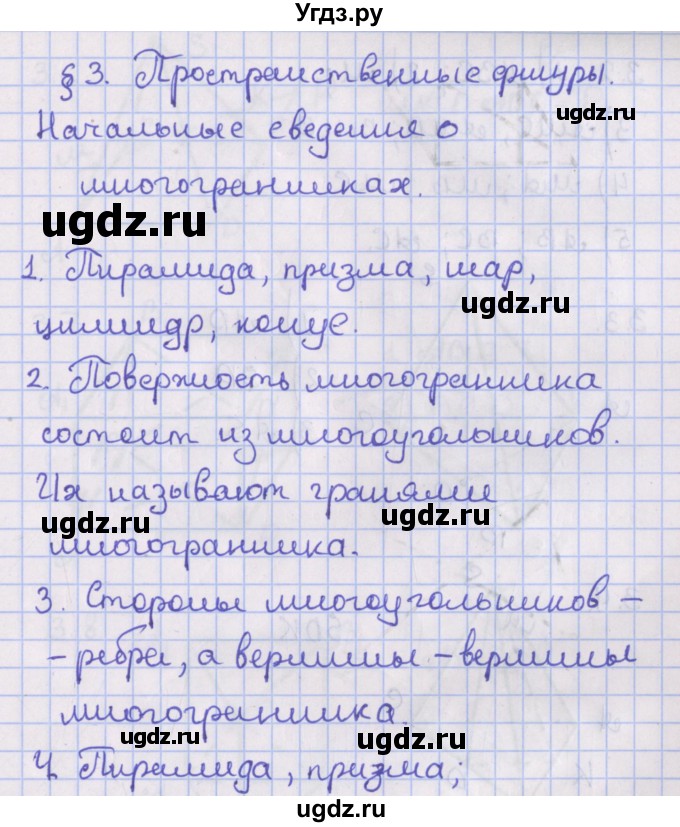 Угдз.ру
§ 3. Пространственные фигуры.
ugdz.ru
Начальные сведения о
многогранниках.
ugdz.ru
1. Пирамида, призма, шар,
ugdz.ru
цилиндр, конус.
2. Поверхность многогранника
состоит из многоугольников.
Их называют гранями
ugdz.ru ugdz.ru
многогранника.
3. Стороны многоугольников –
– ребра, а вершины – вершины
многогранника.
ugdz.ru ugdz.ru
4. Пирамида, призма;
ugdz.ru